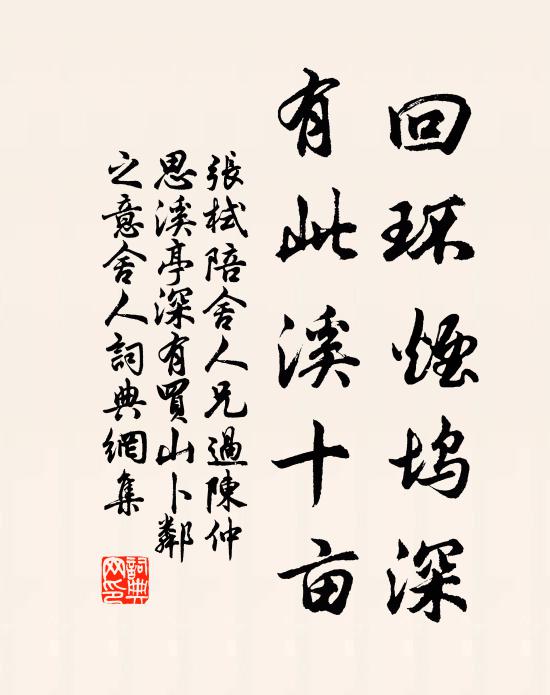 回环煙坞深
有此溪十亩
張栻陪舍人兄過陳仲
思溪亭深有買山卜鄰
之意舍人詞典網集
詞典网印